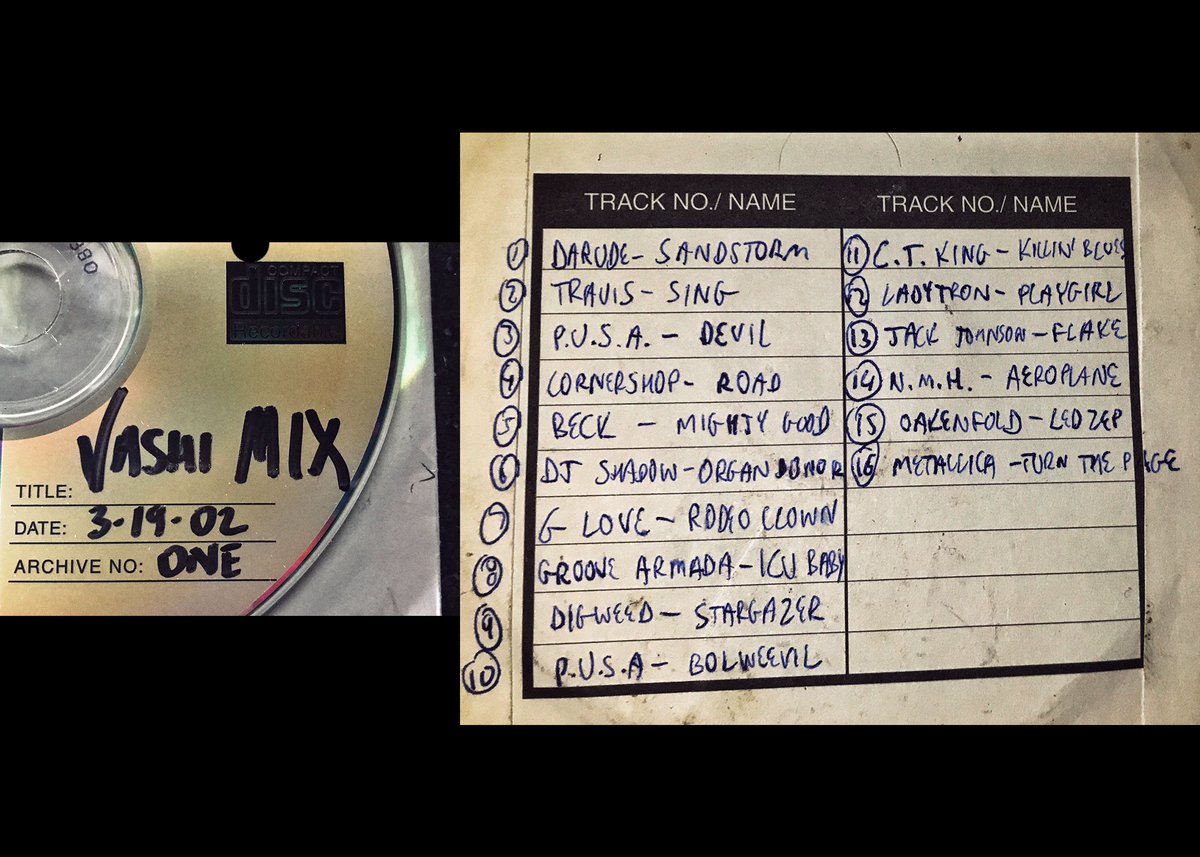 089
COMPACT
disc
Recordable
VASHI MIX
TITLE:
DATE: 3-19-02
ARCHIVE NO: ONE
TRACK NO./ NAME
1 DARUDE- SANDSTORM
2 TRAVIS- SING
3 P.U.S.A. - DEVIL
4 CORNERSHOP- ROAD
5 BECK - MIGHTY GOOD
6 DJ SHADOW-ORGAN DONOR
7 G LOVE- RODEO CLOWN
8 GROOVE ARMADA-ICU BABY
9 DIGWEED- STARGAZER
10 P.U.S.A- BOLWEEVIL
TRACK NO./ NAME
11 C.T. KING- KILLIN' BLUES
12 LADYTRON- PLAYGIRL
13 JACK JOHNSON-FLAKE
14 N.M.H. - AEROPLANE
15 OAKENFOLD-LED ZEP
16 METALLICA -TURN THE PAGE